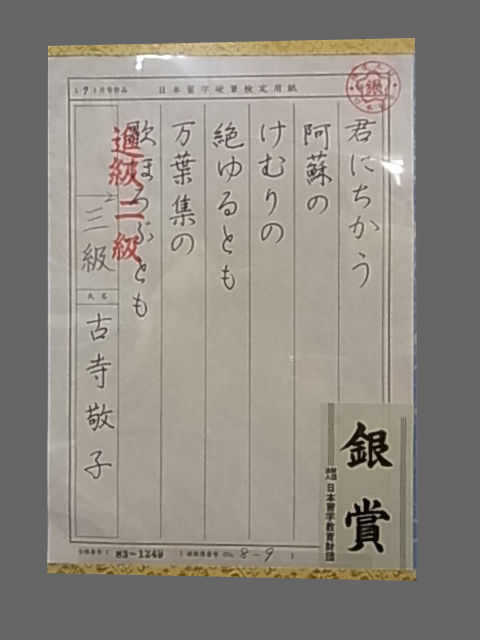 (9)月号作品 日本習字硬筆検定用紙
銀
君にちかう
阿蘇の
けむりの
絶ゆるとも
万葉集の
歌ほろぶとも
進級二級
三級
氏名
古寺敬子
銀賞
財団法人 日本習字教育財団
8-9